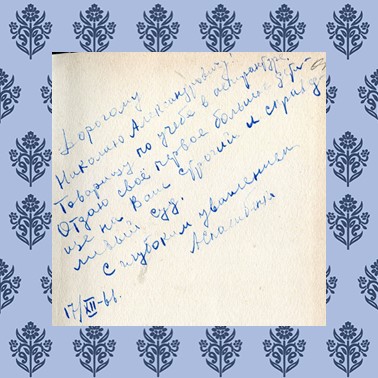 Дорогому
Николаю Александровичу,
Товарищу по учебе в аспирантуре.
Отдаю своё первое большое
на Ваш строгий и справед-
ливый суд.
С глубоким уважением
17/XII-66.